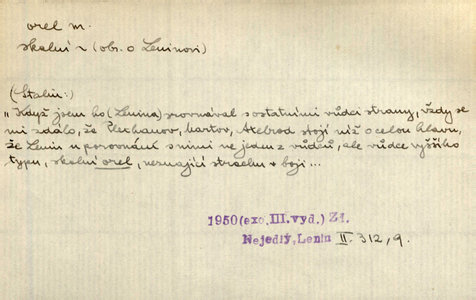 orel m.
skalní ~ (obr. o Leninovi)
(Stalin:)
"Když jsem ho (Lenina) srovnával s ostatními vůdci strany, vždy se
mi zdálo, že Plechanov, Martov, Axelrod stojí níž o celou hlavu,
že Lenin v porovnání s nimi ne jeden z vůdců, ale vůdce vyššího
typu, skalní orel, neznající strachu v boji...
1950 (exc. III. vyd.) Zd.
Nejedlý, Lenin II. 312, 9.